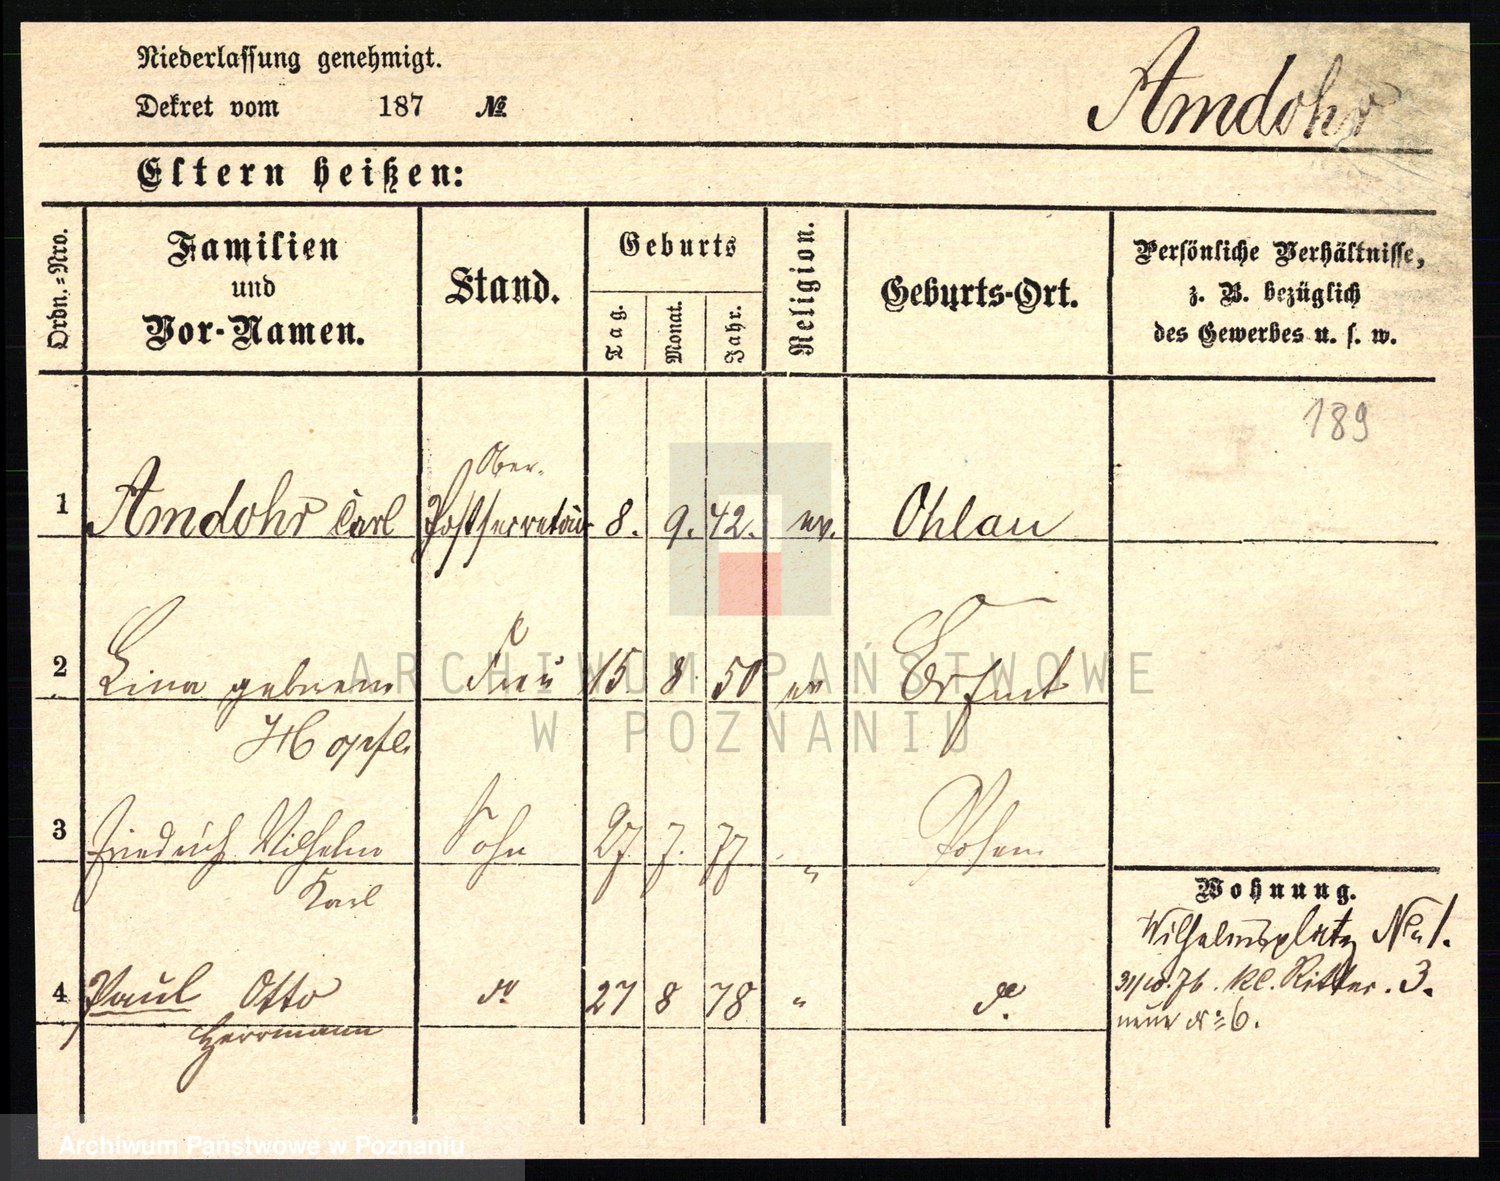 Niederlassung genehmigt.
Dekret vom 187 №
Amdohr
Eltern heißen:
Ordn.-Nro.
Familien
und
Vor-Namen.
Stand.
Geburts
Tag.
Monat.
Jahr.
Religion.
Geburts-Ort.
Persönliche Verhältnisse,
z. B. bezüglich
des Gewerbes u. s. w.
189
Ober-
1 Amdohr Carl Postsecretair 8. 9. 42. ev. Ohlau
2 Lina geborene Frau 15 8. 50 ev Erfurt
3 Friedrich Wilhelm Sohn 27 7. 77 " Posen
Karl
Wohnung.
Wilhelmsplatz No 1.
31/10. 76. Kl. Ritter. 3.
4 Paul Otto do 27 8 78 " do.
Herrmann
neue No 6.
ARCHIWUM PAŃSTWOWE
W POZNANIU
Archiwum Państwowe w Poznaniu